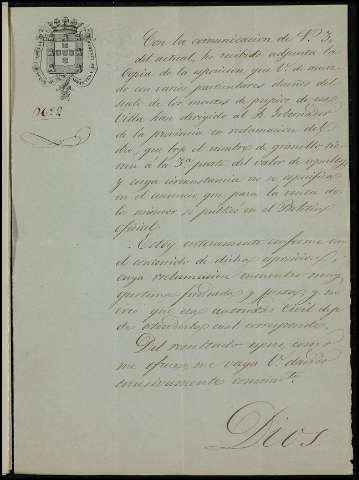 Con la comunicacion de V. 3,
del actual, he recibido adjunta la
copia de la esposicion, que V. de acuer-
do con varios particulares dueños del
suelo de los montes de propios de esa
Villa han dirigido al Sr. Gobernador
de la provincia en reclamacion del
que bajo el nombre de tie-
nen á la 3ª parte del valor de aquellos
y cuya circunstancia no se especifica
en el anuncio que para la venta de
los mismos se publicó en el Boletin
oficial.
Estoy enteramente conforme con
el contenido de dicha esposicion,
cuya reclamacion encuentro muy
oportuna fundada y justa, y no
creo que esa autoridad Civil deje
de atenderla cual corresponde.
Del resultado espero, como
me ofrece, me vaya V. dando
sucesivamente
Dios